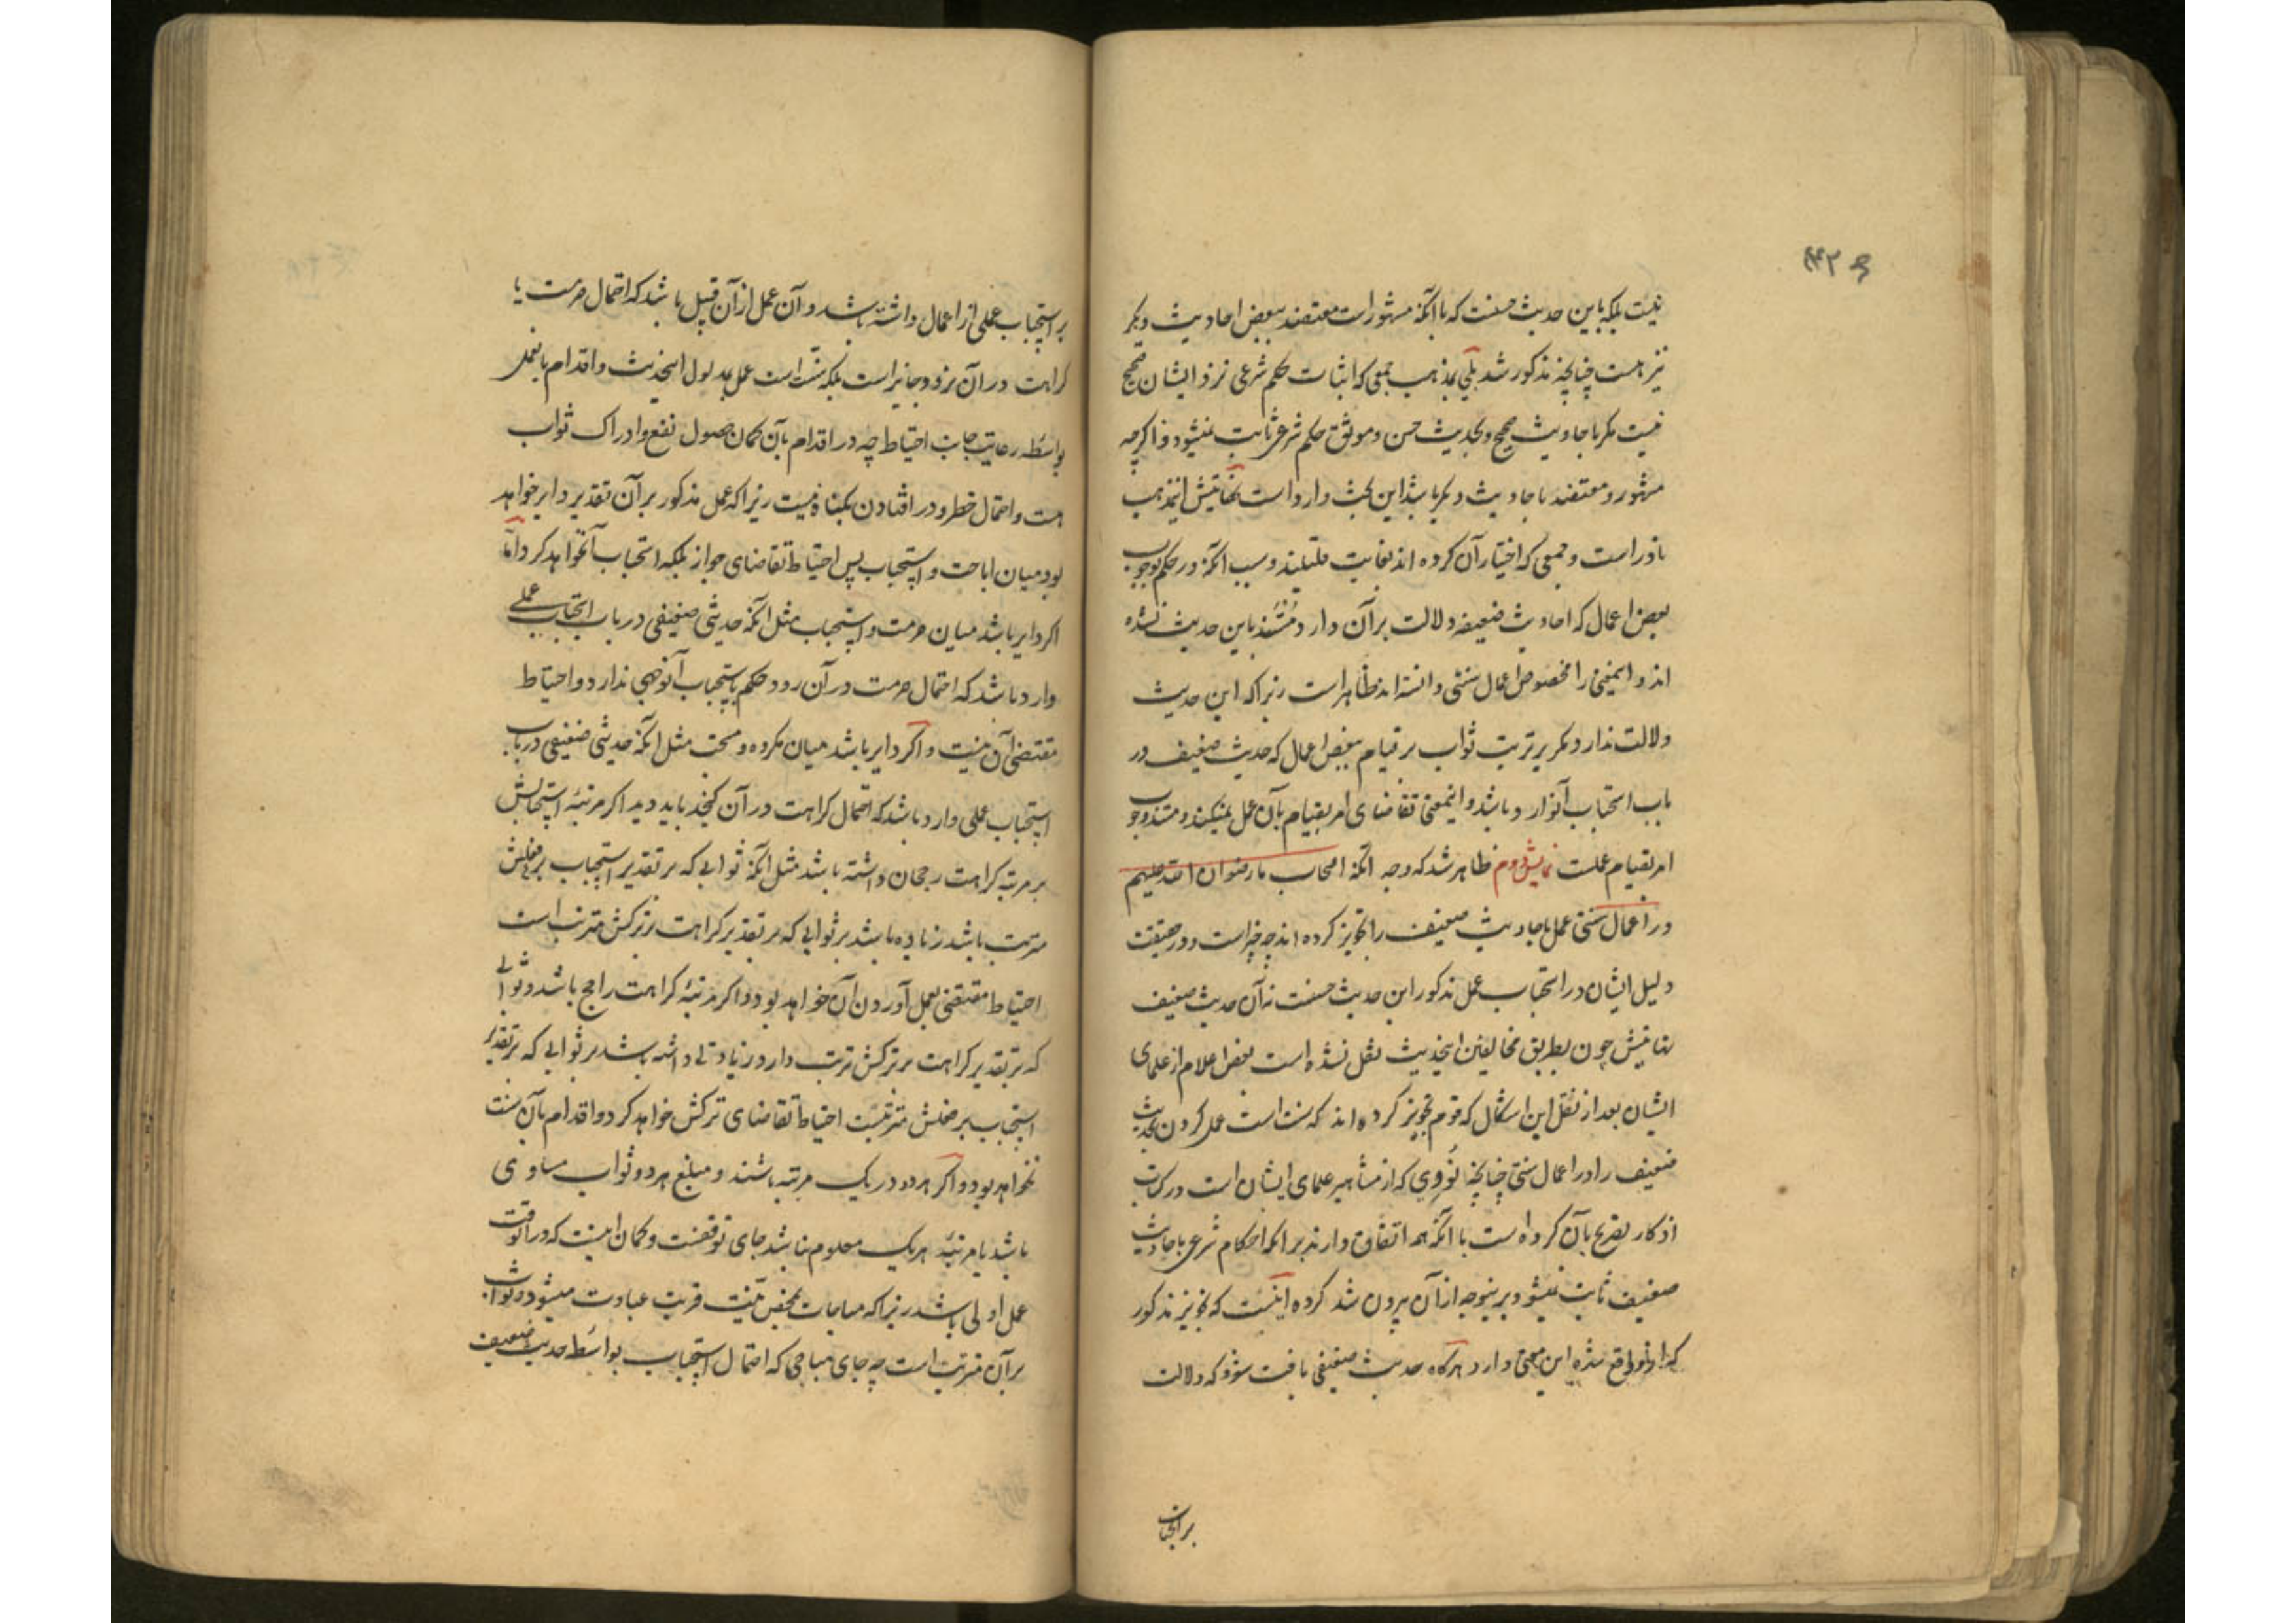 نیست بلکه باین حدیث حسنست که با آنکه مشهور است معتضد ببعض احادیث دیگر
نیز هست چنانچه مذکور شد بلی بمذهب جمعی که اثبات حکم شرعی نزد ایشان صحیح
نیست مکر باحادیث صحیح و بحدیث حسن و موثق حکم شرعی ثابت نمیشود و اکرچه
مشهور و معتضد باحادیث دیکر باشد این بحث وارد است نهایتش اینمذهب
نادر است و جمعی که اختیار آن کرده اند بغایت قلیلند و سبب آنکه در حکم بوجوب
بعض اعمال که احادیث ضعیفه دلالت بر آن دارد متشبث باین حدیث نشده
اند و اینمعنی را مخصوص اعمال سنتی دانسته اند ظاهر است زیرا که این حدیث
دلالت ندارد مکر بر ترتب ثواب بر قیام ببعض اعمال که حدیث ضعیف در
باب استحباب آن وارد باشد و اینمعنی تقاضای امر بقیام بآن عمل نمیکند و مستند وجوب
امر بقیام عملست نمایش دوم ظاهر شد که وجه آنکه اصحاب ما رضوان الله علیهم
در اعمال سنتی عمل باحادیث ضعیف را تجویز کرده اند چه چیز است و در حقیقت
دلیل ایشان در استحباب عمل مذکور این حدیث حسنست نه آن حدیث ضعیف
نهایتش چون بطریق مخالفین اینحدیث نقل نشده است بعض اعلام از علمای
ایشان بعد از نقل این اشکال که قوم تجویز کرده اند که سنت است عمل کردن بحدیث
ضعیف را در اعمال سنتی چنانچه نووی که از مشاهیر علمای ایشان است در کتاب
اذکار تصریح بآن کرده است با آنکه همه اتفاق دارند بر آنکه احکام شرعی باحادیث
ضعیف ثابت نمیشود برینوجه از آن بیرون شد کرده اینست که تجویز مذکور
که از واقع شده این معنی دارد هرکاه حدیث ضعیفی یافت شود که دلالت
بر استحباب
بر استحباب عملی از اعمال داشته باشد و آن عمل از آن قبیل باشد که احتمال حرمت یا
کراهت در آن نرود جایز است بلکه سنّت است عمل بمدلول اینحدیث و اقدام بانعمل
بواسطه رعایت جانب احتیاط چه در اقدام بآن کمان حصول نفع و ادراک ثواب
هست و احتمال خطر و در افتادن بکناه نیست زیرا که عمل مذکور بر آن تقدیر دایر خواهد
بود میان اباحت و استحباب پس احتیاط تقاضای جواز بلکه استحباب آنخواهد کرد و امّا
اکر دایر باشد میان حرمت و استحباب مثل آنکه حدیثی ضعیفی در باب استحباب عملی
وارد باشد که احتمال حرمت در آن رود حکم باستحباب آنوجهی ندارد و احتیاط
مقتضی آن نیست و اکر دایر باشد میان مکروه و مستحب مثل آنکه حدیثی ضعیفی در باب
استحباب عملی وارد باشد که احتمال کراهت در آن کنجد باید دید اکر مرتبۀ استحبابش
بر مرتبۀ کراهت رجحان داشته باشد مثل آنکه ثوابی که بر تقدیر استحباب بر فعلش
مترتب باشد زیاده باشد بر ثوابی که بر تقدیر کراهت بر ترکش مترتب است
احتیاط مقتضی بعمل آوردن آن خواهد بود و اکر مرتبۀ کراهت راجح باشد و ثوابی
که بر تقدیر کراهت بر ترکش ترتب دارد زیادتی داشته باشد بر ثوابی که بر تقدیر
استحباب بر فعلش مترتبست احتیاط تقاضای ترکش خواهد کرد و اقدام بآن سنت
نخواهد بود و اکر هر دو در یک مرتبه باشند و مبلغ هر دو ثواب مساوی
باشد یا مرتبۀ هر یک معلوم نباشد جای توقفست و کمان اینست که در آنوقت
عمل اولی باشد زیرا که مباحات بمحض نیّت قربت عبادت میشود و ثواب
بر آن مترتب است چه جای مباحی که احتمال استحباب بواسطه حدیث ضعیف